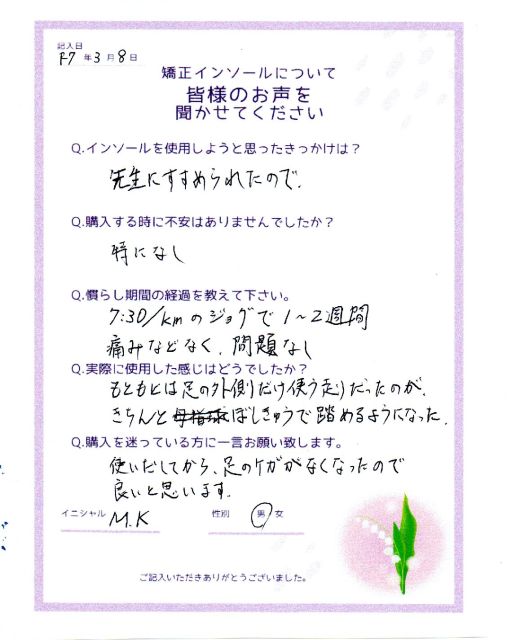 記入日
R7年3月8日
矯正インソールについて
皆様のお声を
聞かせてください
Q.インソールを使用しようと思ったきっかけは?
先生にすすめられたので.
Q.購入する時に不安はありませんでしたか?
特になし
Q.慣らし期間の経過を教えて下さい。
7:30/kmのジョグで1~2週間
痛みなどなく、問題なし
Q.実際に使用した感じはどうでしたか?
もともとは足の外側だけ使う走りだったのが、
きちんと母指球ぼしきゅうで踏めるようになった.
Q.購入を迷っている方に一言お願い致します。
使いだしてから、足のケガがなくなったので
良いと思います.
イニシャル M.K 性別 男 女
ご記入いただきありがとうございました。